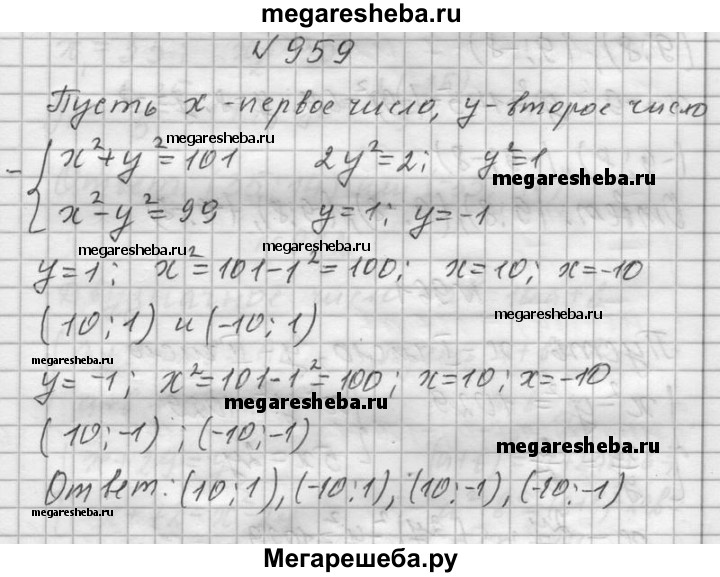 megaresheba.ru
№ 959
Пусть x - первое число, y - второе число
megaresheba.ru
- { x² + y² = 101   2y² = 2;   y² = 1
megaresheba.ru
x² - y² = 99   y = 1; y = -1
megaresheba.ru   megaresheba.ru
y = 1; x² = 101 - 1² = 100; x = 10; x = -10
megaresheba.ru
(10; 1) и (-10; 1)
megaresheba.ru
y = -1; x² = 101 - 1² = 100; x = 10; x = -10
megaresheba.ru
(10; -1) ; (-10; -1)
megaresheba.ru
Ответ: (10; 1), (-10; 1), (10; -1), (-10; -1)
megaresheba.ru
Мегарешеба.ру